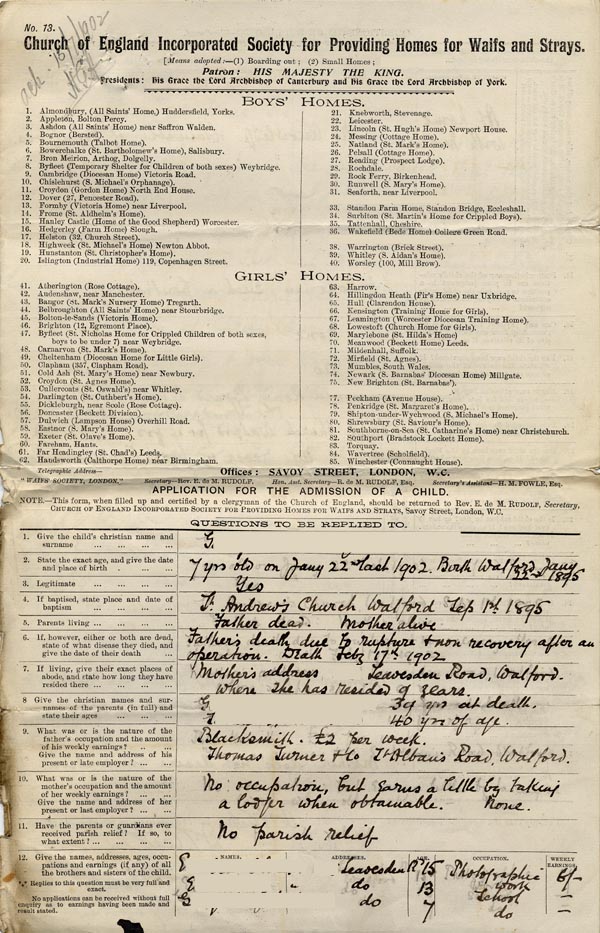 No. 13.
Church of England Incorporated Society for Providing Homes for Waifs and Strays.
[Means adopted:—(1) Boarding out; (2) Small Homes;
Patron: HIS MAJESTY THE KING.
Presidents: his Grace the Lord Archbishop of Canterbury and his Grace the Lord Archbishop of York.
BOYS' HOMES.
1. Almondbury, (All Saints' Home,) Huddersfield, Yorks.
2. Appleton, Bolton Percy.
3. Ashdon (All Saints' Home) near Saffron Walden.
4. Bognor (Bersted).
5. Bournemouth (Talbot Home).
6. Bowerchalke (St. Bartholomew's Home), Salisbury.
7. Bron Meirion, Arthog, Dolgelly.
8. Byfleet (Temporary Shelter for Children of both sexes) Weybridge.
9. Cambridge (Diocesan Home) Victoria Road.
10. Chislehurst (S. Michael's Orphanage).
11. Croydon (Gordon Home) North End House.
12. Dover (27, Pencester Road).
13. Formby (Victoria Home) near Liverpool.
14. Frome (St. Aldhelm's Home).
15. Hanley Castle (Home of the Good Shepherd) Worcester.
16. Hedgerley (Farm Home) Slough.
17. Helston (32, Church Street).
18. Highweek (St. Michael's Home) Newton Abbot.
19. Hunstanton (St. Christopher's Home).
20. Islington (Industrial Home) 119, Copenhagen Street.
21. Knebworth, Stevenage.
22. Leicester.
23. Lincoln (St. Hugh's Home) Newport House.
24. Messing (Cottage Home)
25. Natland (St. Mark's Home)
26. Pelsall (Cottage Home)
27. Reading (Prospect Lodge).
28. Rochdale.
29. Rock Ferry, Birkenhead.
30. Runwell (S. Mary's Home).
31. Seaforth, near Liverpool.
33. Standon Farm Home, Standon Bridge, Eccleshall.
34. Surbiton (St. Martin's Home for Crippled Boys).
35. Tattenhall, Cheshire.
36. Wakefield (Bede Home) College Green Road.
38. Warrington (Brick Street).
39. Whitley (S. Aidan's Home).
40. Worsley (100, Mill Brow).
GIRLS' HOMES.
41. Atherington (Rose Cottage).
42. Audenshaw, near Manchester.
43. Bangor (St. Mark's Nursery Home) Tregarth.
44. Belbroughton (All Saints' Home) near Stourbridge.
45. Bolton-le-Sands (Victoria Home).
46. Brighton (12, Egremont Place).
47. Byfleet (St. Nicholas Home for Crippled Children of both sexes,
boys to be under 7) near Weybridge.
48. Carnarvon (St. Mark's Home).
49. Cheltenham (Diocesan Home for Little Girls).
50. Clapham (357, Clapham Road).
51. Cold Ash (St. Mary's Home) near Newbury.
52. Croydon (St. Agnes Home).
53. Cullercoats (St. Oswald's) near Whitley.
54. Darlington (St. Cuthbert's Home)
55. Dickleburgh, near Scole (Rose Cottage).
56. Doncaster (Beckett Division).
57. Dulwich (Lampson House) Overhill Road.
58. Eastnor (S. Mary's Home).
59. Exeter (St. Olave's Home).
60. Fareham, Hants.
61. Far Headingley (St. Chad's) Leeds.
62. Handsworth (Calthorpe Home) near Birmingham.
63. Harrow.
64. Hillingdon Heath (Fir's Home) near Uxbridge.
65. Hull (Clarendon House)
66. Kensington (Training Home for Girls).
67. Leamington (Worcester Diocesan Training Home).
68. Lowestoft (Church Home for Girls).
69. Marylebone (St. Hilda's Home)
70. Meanwood (Beckett Home) Leeds.
71. Mildenhall, Suffolk.
72. Mirfield (St. Agnes).
73. Mumbles, South Wales.
74. Newark (S. Barnabas' Diocesan Home) Millgate.
75. New Brighton (St. Barnabas').
77. Peckham (Avenue House).
78. Penkridge (St. Margaret's Home).
79. Shipton-under-Wychwood (S. Michael's Home).
80. Shrewsbury (St. Saviour's Home).
81. Southborne-on-Sea (St. Catharine's Home) near Christchurch.
82. Southport (Bradstock Lockett Home).
83. Torquay.
84. Wavertree (Scholfield).
85. Winchester (Connaught House).
Telegraphic Address—
"WAIFS SOCIETY, LONDON."
Offices: SAVOY STREET, LONDON, W.C.
Secretary—Rev. E. de M. RUDOLF. Hon. Aut. Secretary—R. de M. RUDOLF, Esq. Secretary's Assistant—H. M. FOWLE, Esq.
APPLICATION FOR THE ADMISSION OF A CHILD.
NOTE.—This form, when filled up and certified by a clergyman of the Church of England, should be returned to Rev. E. de M. RUDOLF, Secretary,
CHURCH OF ENGLAND INCORPORATED SOCIETY FOR PROVIDING HOMES FOR WAIFS AND STRAYS, Savoy Street, London, W.C.
QUESTIONS TO BE REPLIED TO.
1. Give the child's christian name and
surname
G.
2. State the exact age, and give the date
and place of birth
7 yrs old on Jany 22nd last 1902. Birth Watford Jany
22nd 1895
3. Legitimate
Yes
4. If baptised, state place and date of
baptism
St. Andrew's Church Watford Sep 1st 1895
5. Parents living
Father dead. Mother alive
6. If, however, either or both are dead,
state of what disease they died, and
give the date of their death
Father's death due to rupture & non recovery after an
operation. Death Feby 17th 1902
7. If living, give their exact places of
abode, and state how long they have
resided there
Mother's address Leavesden Road, Watford.
where she has resided 9 years.
8 Give the christian names and sur-
names of the parents (in full) and
state their ages
G 39 yrs at death.
40 yrs of age.
9. What was or is the nature of the
father's occupation and the amount
of his weekly earnings?
Give the name and address of his
present or late employer?
Blacksmith. £2 per week.
Thomas Turner & Co St Albans Road, Watford.
10. What was or is the nature of the
mother's occupation and the amount
of her weekly earnings?
Give the name and address of her
present or last employer?
No occupation, but earns a little by taking
a lodger when obtainable. None.
11. Have the parents or guardians ever
received parish relief? If so, to
what extent?
No parish relief
12. Give the names, addresses, ages, occu-
pations and earnings (if any) of all
the brothers and sisters of the child.
Replies to this question must be very full and
exact.
No applications can be received without full
enquiry as to earnings having been made and
result stated.
NAMES. ADDRESSES. AGE. OCCUPATION. WEEKLY
EARNINGS.
E Leavesden Rd 15 Photographic 6/-
work
E do 13 School —
G do 7 do —